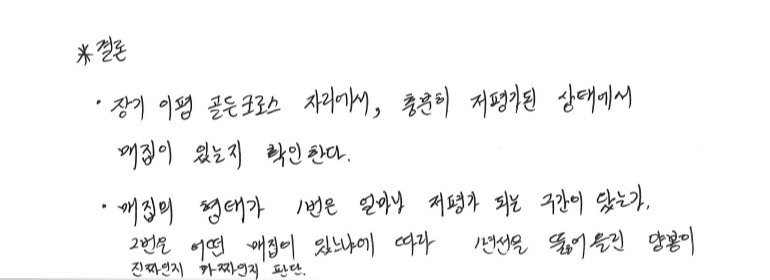 * 결론
· 장기 이평 골든크로스 자리에서, 충분히 저평가된 상태에서
매집이 있는지 확인한다.
· 매집의 형태가 1번은 얼마나 저평가 되는 구간이 됐는가,
2번은 어떤 매집이 있느냐에 따라 1년선을 뚫어올린 양봉이
진짜인지 가짜인지 판단.